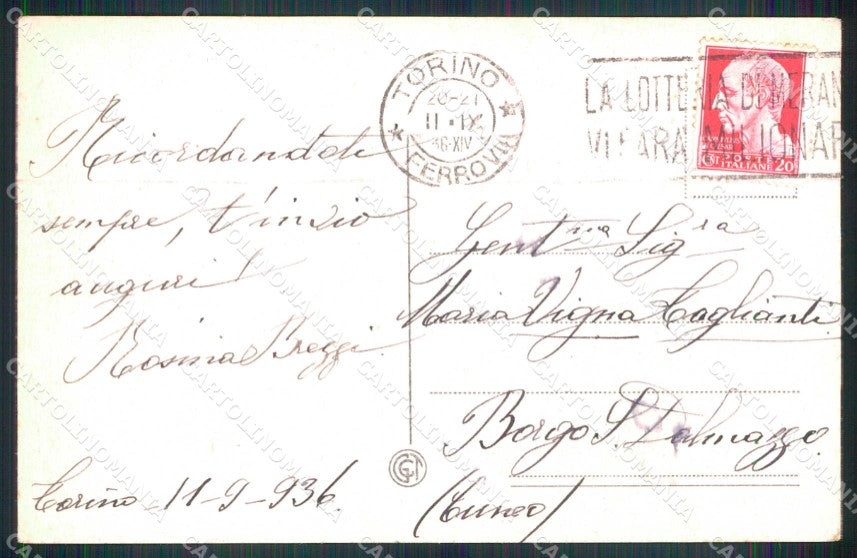 Ricordandoti
sempre, t'invio
auguri!
Rosina
Torino 11-9-936.
TORINO
20-21
11·IX
36-XIV
FERROVIA
LA LOTTERIA DI MERAN
VI FARÀ MILIONAR
POSTE
ITALIANE
CENT 20
Gent.ma Sig.ra
Maria Vigna Taglianti
Borgo S. Dalmazzo
(Cuneo)
CARTOLINOMANIA